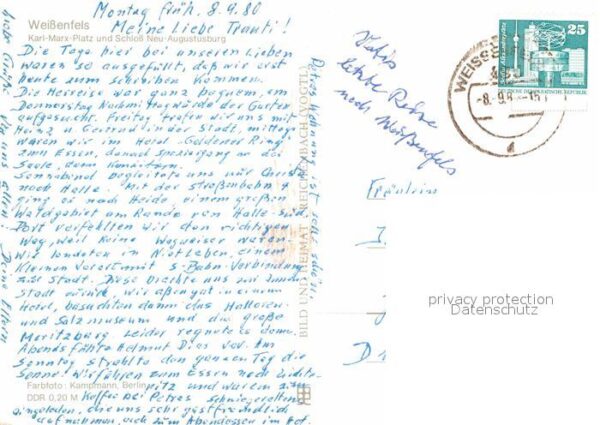 Montag früh, 8.9.80
Meine Liebe Trauti!
Weißenfels
Karl-Marx-Platz und Schloß Neu-Augustusburg
Die Tage hier bei unseren Lieben
waren so ausgefüllt, daß wir erst
heute zum schreiben kommen.
Die Herreise war ganz bequem, am
Donnerstag Nachmittag würde der Garten
aufgesucht. Freitag trafen wir uns mit
Heinz u Gertrud in der Stadt, mittags
waren wir im Hotel "Goldener Ring"
zum Essen, danach Spaziergang an der
Saale, dann
Sonnabend begleitete uns nur Christa
nach Halle. Mit der Straßenbahn 4
ging es nach Heide, einem großen
Waldgebiet am Rande von Halle-Süd.
Dort verfehlten wir den richtigen
Weg, weil keine Wegweiser waren
Wir landeten in Nietleben, einem
kleinen Vorort mit S Bahn-Verbindung
zur Stadt. Diese brachte uns zur
Stadt zurück, wir aßen gut in einem
Hotel, besuchten dann das Halloren-
und Salzmuseum und die große
Moritzburg Leider regnete es dann.
Abends führte Helmut Dias vor. Am
Sonntag strahlte den ganzen Tag die
Sonne. Wir fuhren zum Essen nach
und waren zum
Kaffee bei Petras Schwiegereltern
eingeladen, die uns sehr gastfreundlich
aufnahmen, auch zum Abendessen im
Farbfoto: Kampmann, Berlin
DDR 0,20 M
Petras Wohnung ist sehr schön.
Viele Grüße von uns allen! Deine Eltern
BILD UND HEIMAT REICHENBACH (VOGTL)
letzte Reise
nach Weißenfels
WEISSENFELS
-8.-9.8 -15
d
25
DEUTSCHE DEMOKRATISCHE REPUBLIK
Fräulein
privacy protection
Datenschutz